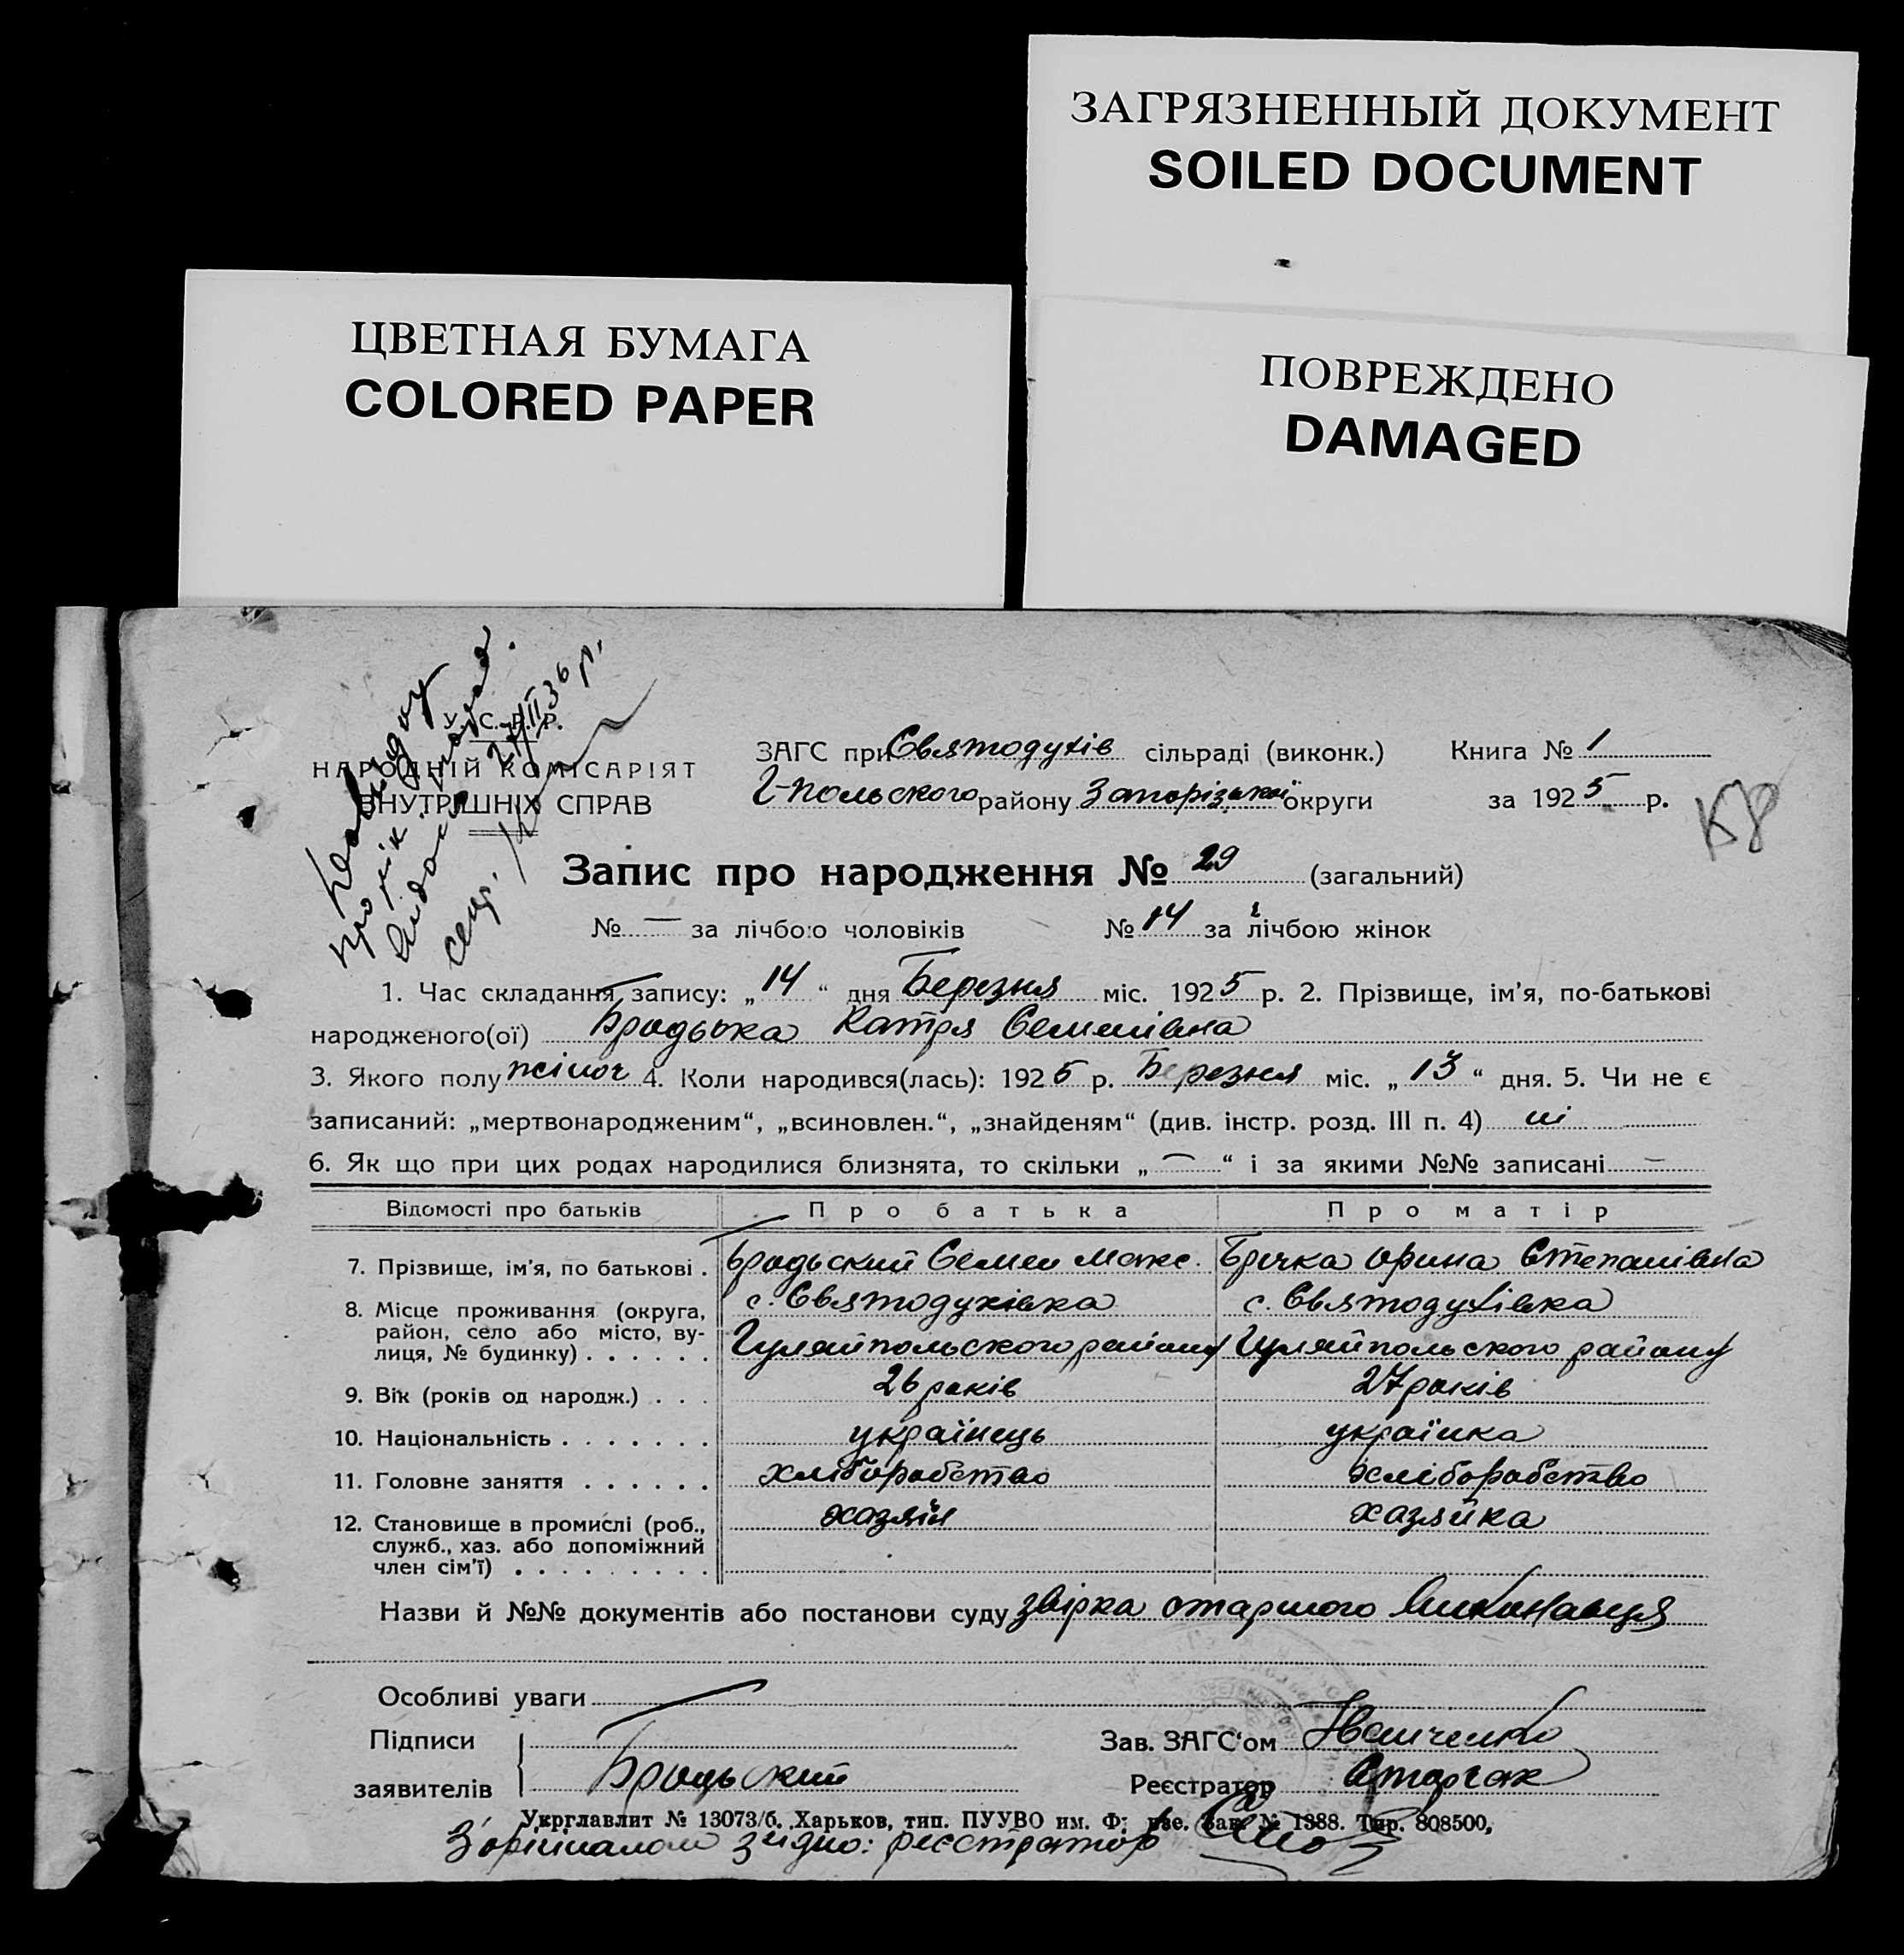 ЗАГРЯЗНЕННЫЙ ДОКУМЕНТ
SOILED DOCUMENT
ЦВЕТНАЯ БУМАГА
COLORED PAPER
ПОВРЕЖДЕНО
DAMAGED
У. С. Р. Р.
НАРОДНІЙ КОМІСАРІЯТ
ВНУТРІШНІХ СПРАВ
ЗАГС при Святодухів сільраді (виконк.) Книга № 1
Г-Польского району Запорізької округи за 1925 р.
К8
Запис про народження № 29 (загальний)
№ — за лічбою чоловіків № 14 за лічбою жінок
1. Час складання запису: „14“ дня Березня міс. 1925 р. 2. Прізвище, ім’я, по-батькові
народженого(ої) Бродська Катря Семенівна
3. Якого полу жіноч 4. Коли народився(лась): 1925 р. Березня міс. „13“ дня. 5. Чи не є
записаний: „мертвонародженим“, „всиновлен.“, „знайденям“ (див. інстр. розд. III п. 4) ні
6. Як що при цих родах народилися близнята, то скільки „—“ і за якими №№ записані —
Відомості про батьків Про батька Про матір
7. Прізвище, ім’я, по батькові . Бродьский Семен Макс. Бричка Орина Степанівна
8. Місце проживання (округа, район, село або місто, вулиця, № будинку) . . . . . . с. Святодухівка с. Святодухівка
Гуляйпольского району Гуляйпольского району
9. Вік (років од народж.) . . . 26 років 27 років
10. Національність . . . . . . . українець українка
11. Головне заняття . . . . . . хліборобство хліборобство
12. Становище в промислі (роб., служб., хаз. або допоміжний член сім’ї) . . . . . . . . . хазяїн хазяйка
Назви й №№ документів або постанови суду звірка старшого виконавця
Особливі уваги
Підписи Зав. ЗАГС‘ом Іванченко
заявителів Бродьский Реєстратор
Укрглавлит № 13073/б. Харьков, тип. ПУУВО им. Ф. Зав. № 1388. Тир. 808500,
З орігіналом згідно: реєстратор